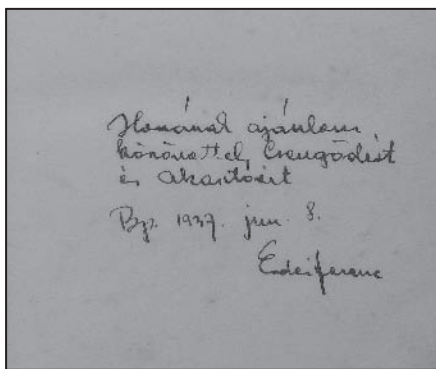 Homának ajánlom
köszönettel, Csengődért
és Akasztóért
Bp. 1937. jun. 8.
Erdei Ferenc